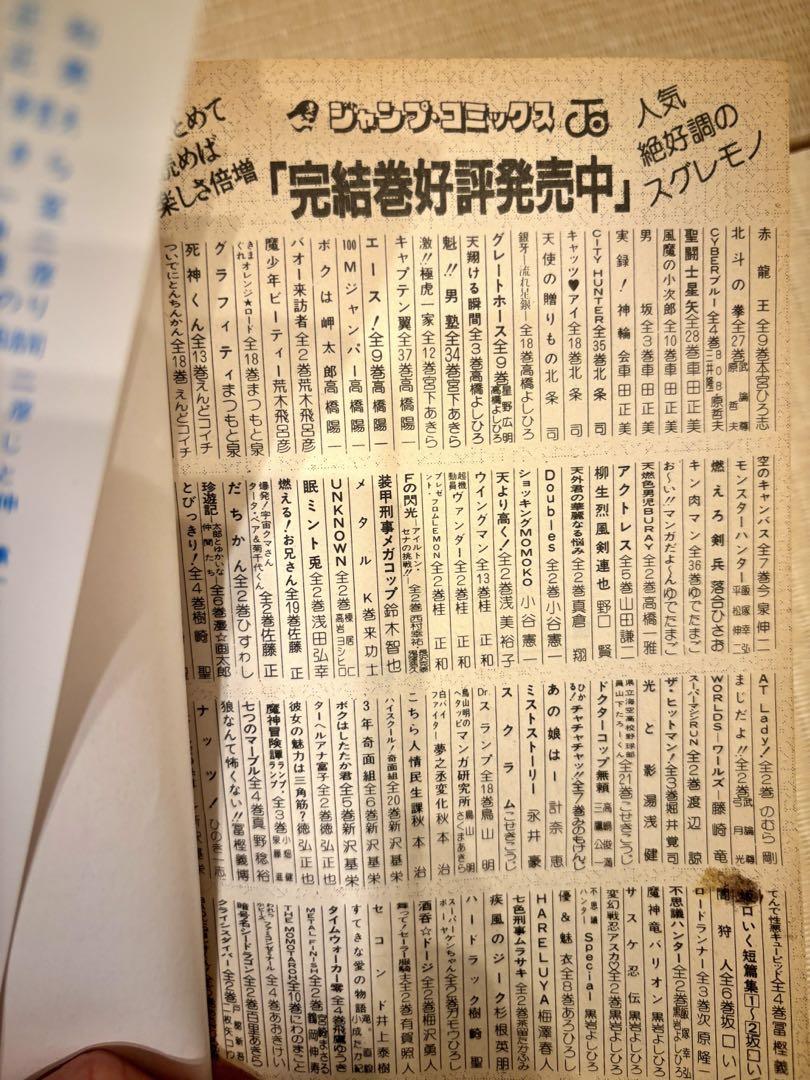 ジャンプ・コミックス
「完結巻好評発売中」
人気
絶好調の
スグレモノ
とめて
読めば
楽しさ倍増
赤龍王 全9巻 本宮ひろ志
北斗の拳 全27巻 武論尊 原哲夫
CYBERブルー 全4巻 BOB 三井隆一 原哲夫
聖闘士星矢 全28巻 車田正美
風魔の小次郎 全10巻 車田正美
男坂 全3巻 車田正美
実録!神輪会 車田正美
CITY HUNTER 全35巻 北条司
キャッツ♥アイ 全18巻 北条司
天使の贈りもの 北条司
銀牙 流れ星銀 全18巻 高橋よしひろ
グレートホース 全9巻 星野広明 高橋よしひろ
天翔ける瞬間 全3巻 高橋よしひろ
魁!!男塾 全34巻 宮下あきら
激!!極虎一家 全12巻 宮下あきら
キャプテン翼 全37巻 高橋陽一
エース! 全9巻 高橋陽一
100Mジャンパー 高橋陽一
ボクは岬太郎 高橋陽一
バオー来訪者 全2巻 荒木飛呂彦
魔少年ビーティー 荒木飛呂彦
きまぐれオレンジ★ロード 全18巻 まつもと泉
グラフィティ まつもと泉
死神くん 全13巻 えんどコイチ
ついでにとんちんかん 全18巻 えんどコイチ
空のキャンバス 全7巻 今泉伸二
モンスターハンター 飯塚幸弘 平松伸二
燃えろ剣兵 落合ひさお
キン肉マン 全36巻 ゆでたまご
お〜い!!マンガだよ〜ん ゆでたまご
天燃色男児BURAY 全2巻 高橋一雅
アクトレス 全5巻 山田謙二
柳生烈風剣連也 野口賢
天外君の華麗なる悩み 全2巻 真倉翔
Doubles 全2巻 小谷憲一
ショッキングMOMOKO 小谷憲一
天より高く! 全2巻 浅美裕子
ウイングマン 全13巻 桂正和
超機動員ヴァンダー 全2巻 桂正和
プレゼント・フロムLEMON 全2巻 桂正和
Fの閃光 アイルトン・セナの挑戦!! 全2巻 西村幸祐
装甲刑事メガコップ 鈴木智也
メタルK 巻来功士
UNKNOWN 全2巻 高岩ヨシヒロ
眠兎 全2巻 浅田弘幸
燃える!お兄さん 全19巻 佐藤正
爆発!宇宙クマさん 全2巻 佐藤正
だちかん 全2巻 ひすわし
珍遊記 太郎とゆかいな仲間たち 全6巻 漫☆画太郎
とびっきり! 全4巻 樹崎聖
AT Lady! 全2巻 のむら剛
まじだよ!! 全2巻 武論尊 弓月光
WORLDS―ワールズ― 藤崎竜
スーパーマシンRUN 全2巻 渡辺諒
ザ・ヒットマン! 全3巻 堀井覚司
光と影 湯浅健
県立海空高校野球部員山下たろーくん 全21巻 こせきこうじ
ドクターコップ無頼
ひかる!チャチャチャッ!! 全7巻 みのもけんじ
あの娘は… 計奈恵
ミストストーリー 永井豪
スクラム こせきこうじ
Dr.スランプ 全18巻 鳥山明
鳥山明のヘタッピマンガ研究所 さくまあきら 鳥山明
白バイファイター 夢之丞変化 秋本治
こちら人情民生課 秋本治
ハイスクール!奇面組 全20巻 新沢基栄
3年奇面組 全6巻 新沢基栄
ボクはしたたか君 全5巻 新沢基栄
ターヘルアナ富子 全2巻 徳弘正也
彼女の魅力は三角筋? 徳弘正也
魔神冒険譚ランプ・ランプ 全3巻 小畑健 泉藤進
七つのマーブル 全4巻 真野稔裕
狼なんて怖くない!! 冨樫義博
ナッツ! ひのき一志
てんで性悪キューピッド 全4巻 冨樫義
闇狩人 全6巻 坂口い
ロードランナー 全3巻 次原隆二
不思議ハンター 全2巻 飯塚幸弘 黒岩よしひろ
魔神竜バリオン 黒岩よしひろ
サスケ忍伝 黒岩よしひろ
変幻戦忍アスカ 全2巻 黒岩よしひろ
不思議ハンターSpecial 黒岩よしひろ
優&魅衣 全8巻 あろひろし
HARELUYA 梅澤春人
七色刑事ムラサキ 全2巻
疾風のジーク 杉根英朋
ハードラック 樹崎聖
スーパーケンちゃん 全2巻 ガモウひろし
酒呑☆ドージ 全2巻 梅沢勇人
舞って!セーラー服騎士 全2巻 有賀照人
セコンド 井上泰樹
すてきな愛の物語 小成たか紀
タイムウォーカー零 全4巻 飛鷹ゆうき
METAL FINISH 全2巻 鶴岡伸寿
THE MOMOTAROH 全10巻 にわのまこと
全4巻 あおきけい
暗号名シードラゴン 全2巻 戸館新吾 百里あきら
クライシスダイバー 全2巻